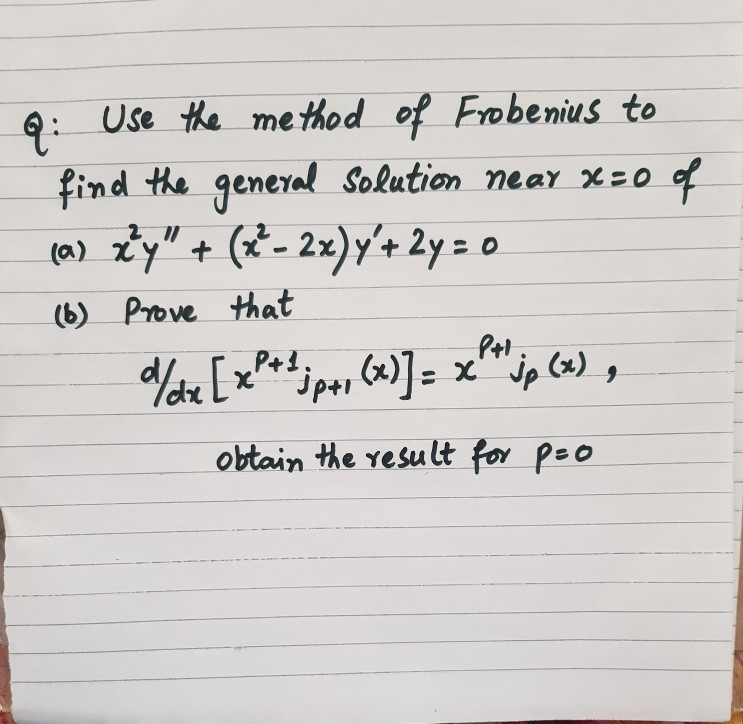 Q: Use the method of Frobenius to
find the general solution near x=0 of
(a) x²y" + (x² - 2x)y' + 2y = 0
(b) Prove that
d/dx [x^{P+1} j_{p+1} (x)] = x^{P+1} j_p (x) ,
obtain the result for p=0